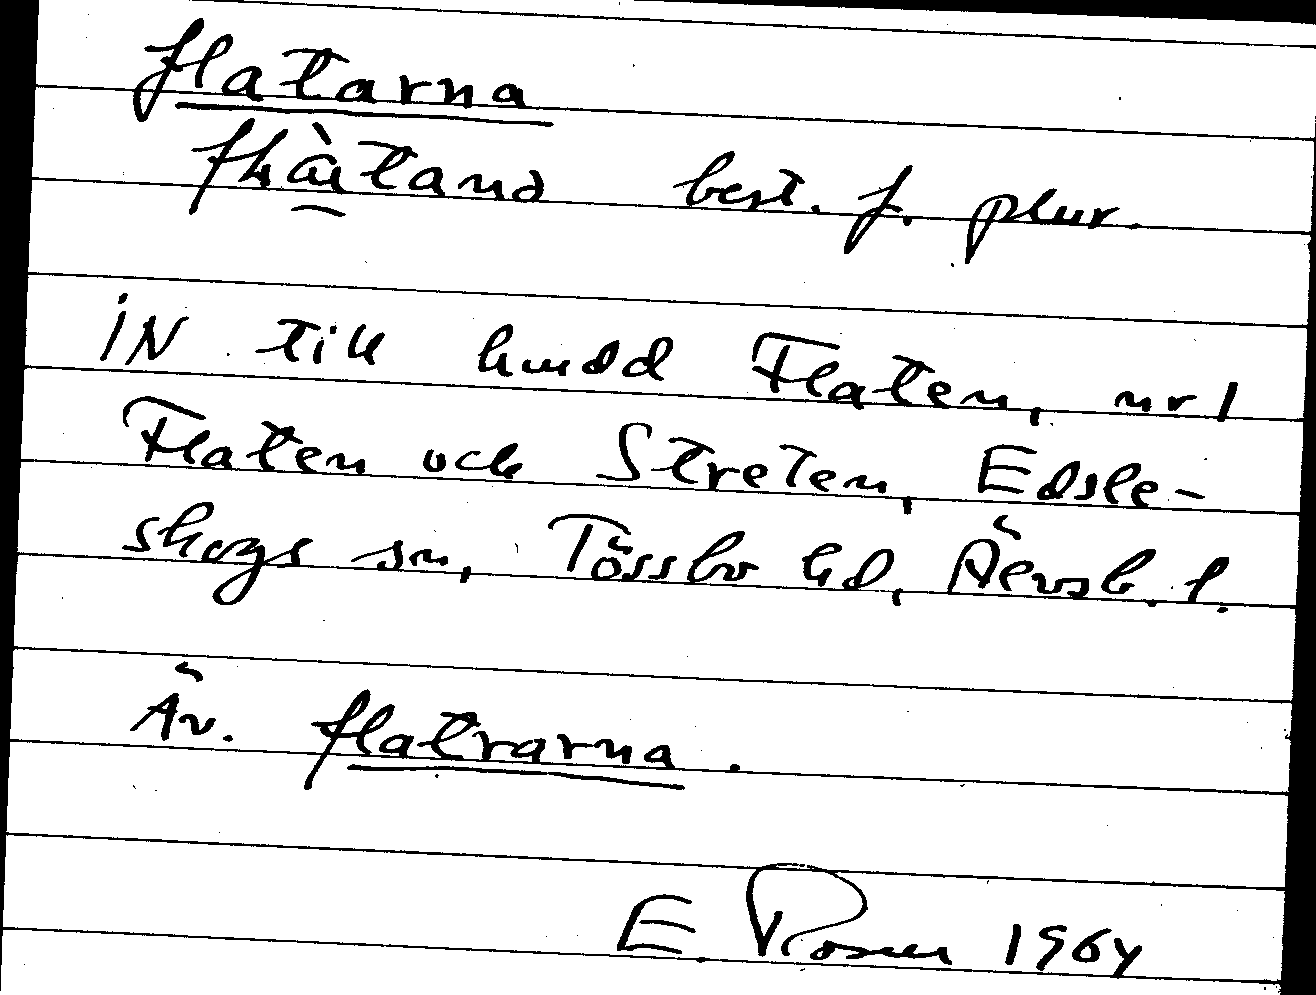 flatarna
best. f. plur.
IN till hmdd Flaten, nr 1
Flaten och Streten, Edsle-
skogs sn, Tössbo hd, Älvsb. l.
Äv. flatrarna.
E. Rosell 1964